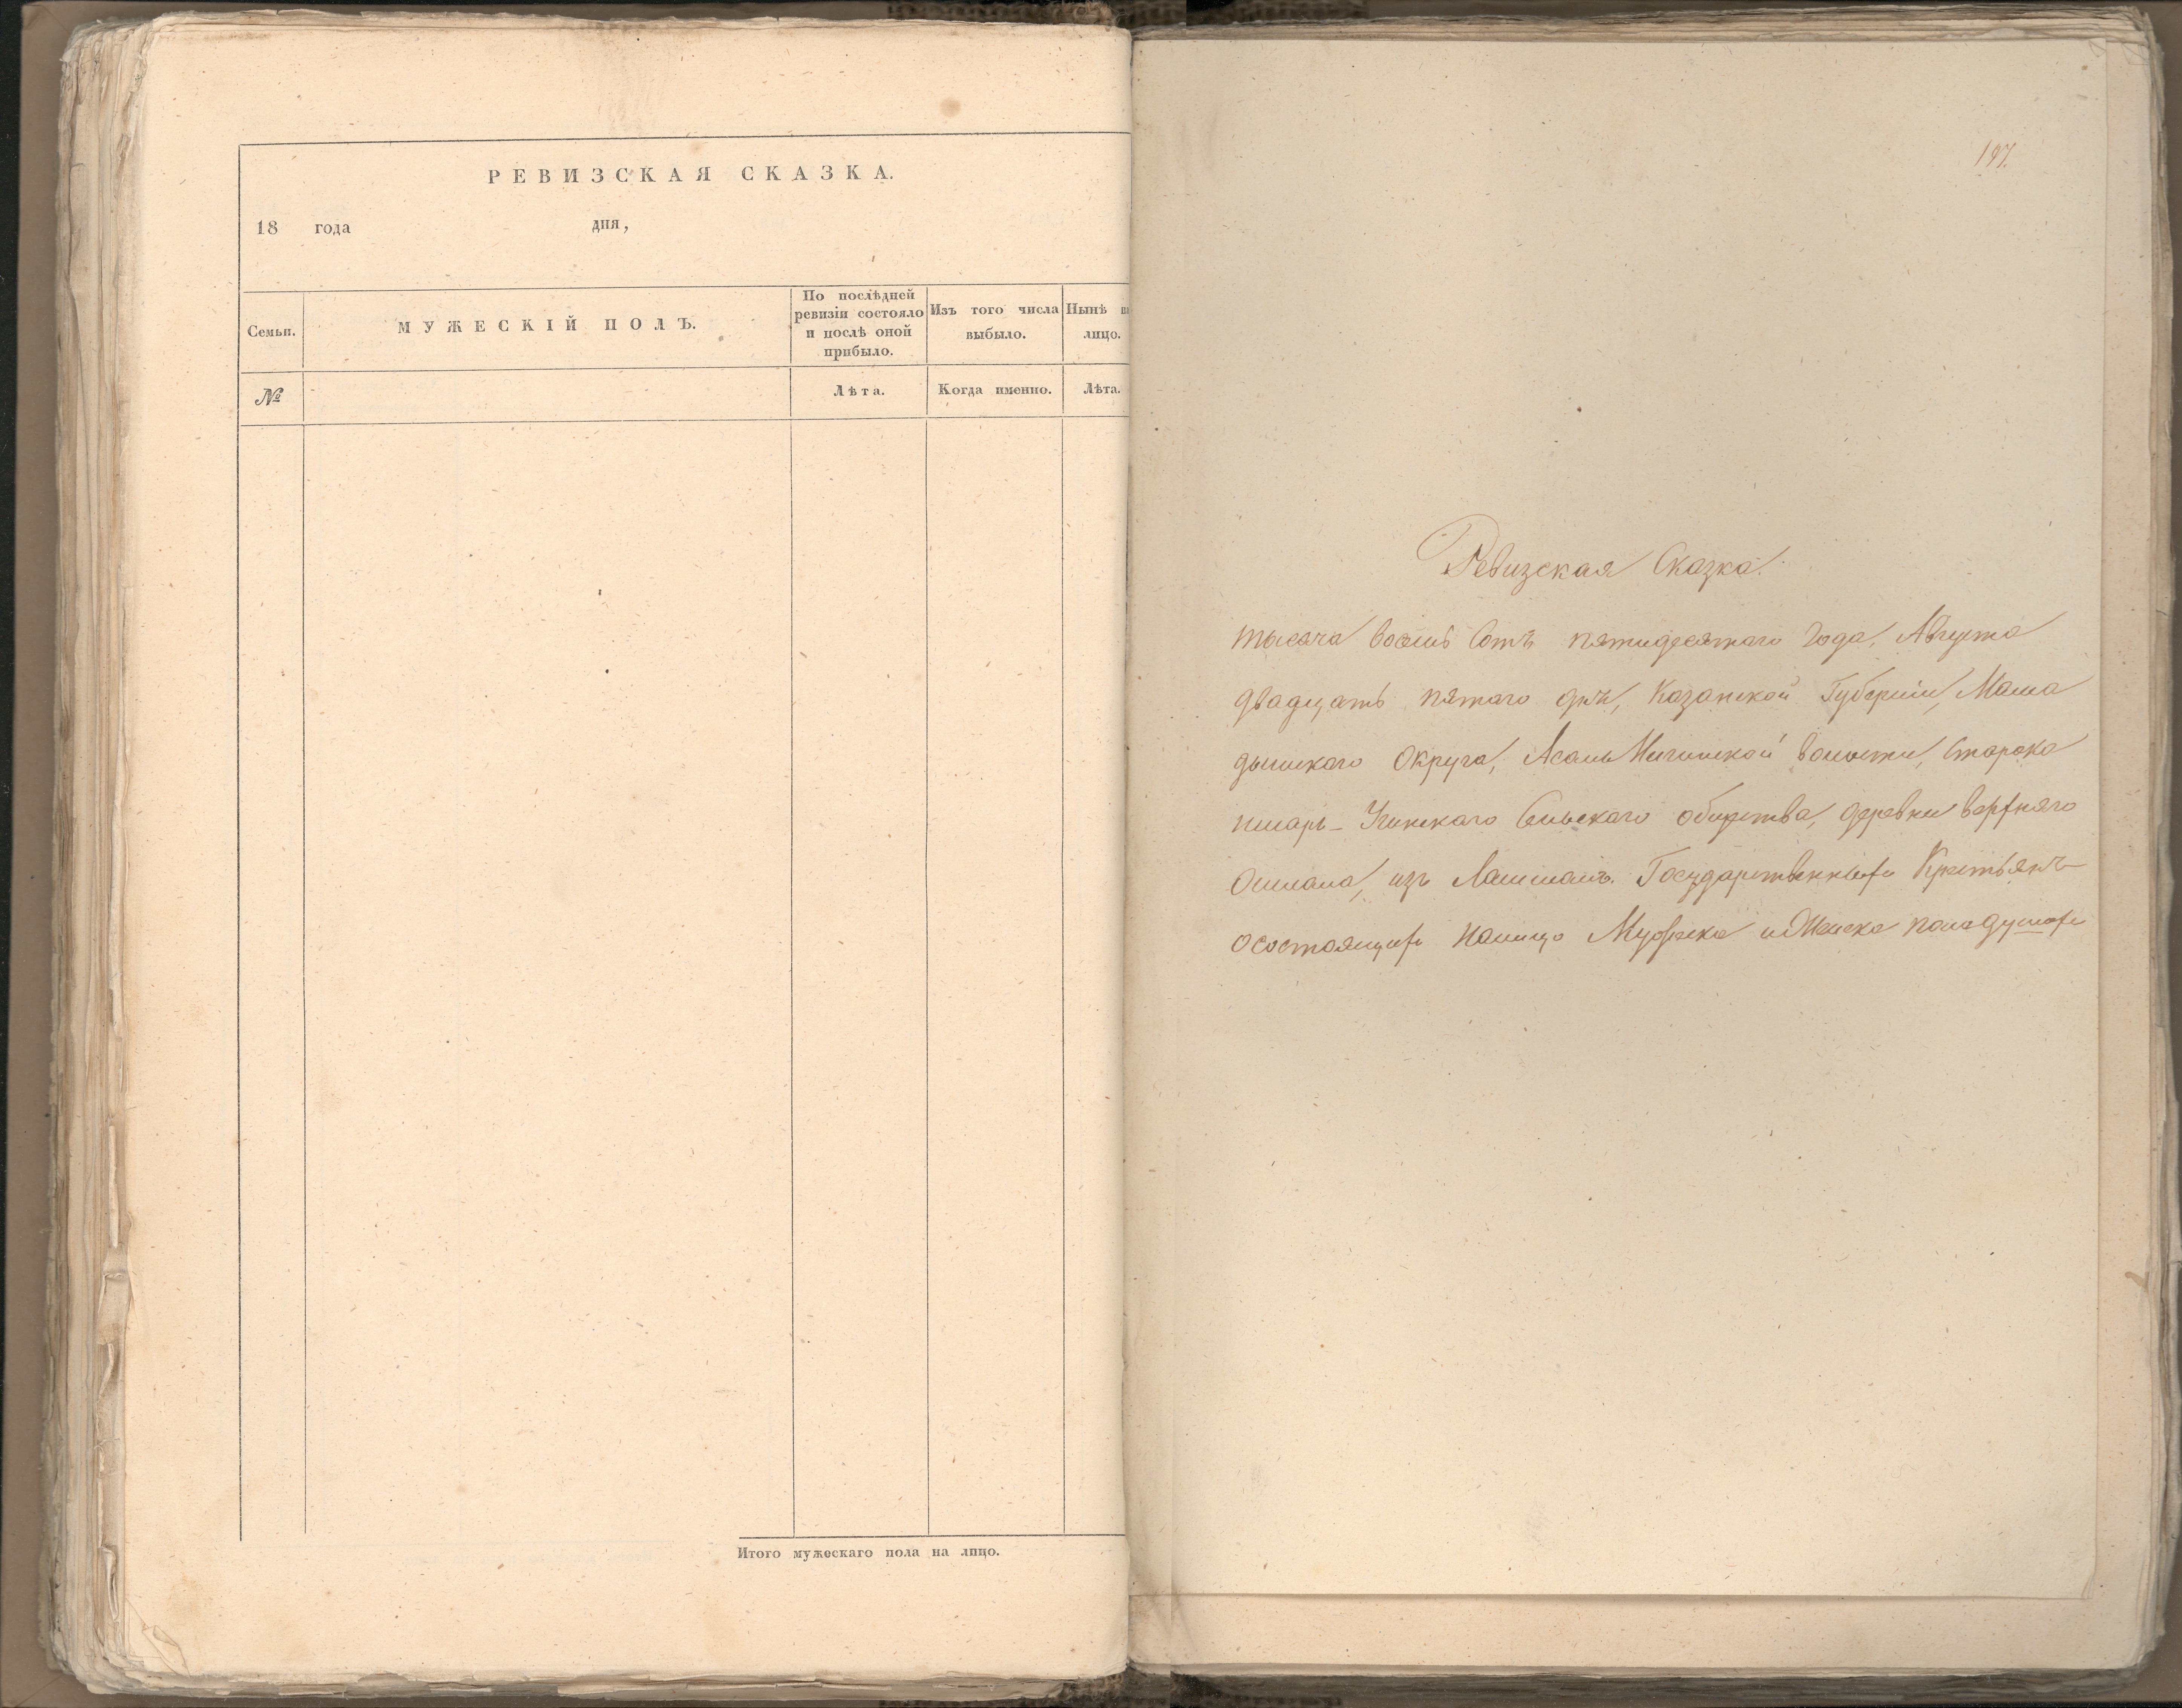 РЕВИЗСКАЯ СКАЗКА.
18 года дня,
Семьи.
МУЖЕСКІЙ ПОЛЪ.
По послѣдней
ревизіи состояло
и послѣ оной
прибыло.
Изъ того числа
выбыло.
Нынѣ на
лицо.
№
Лѣта.
Когда именно.
Лѣта.
Итого мужескаго пола на лицо.
197.
Ревизская Сказка.
тысяча восемь Сотъ пятидесятаго Года, Августа
двадцать пятаго дня, Казанской Губерніи, Мама
дышскаго Округа, волости, Старока
Учинскаго Сельскаго общества, деревни верхняго
Ошлана, изъ Лашманъ. Государственныхъ Крестьянъ
осостоящихъ налицо Мужеска и Женска пола душахъ